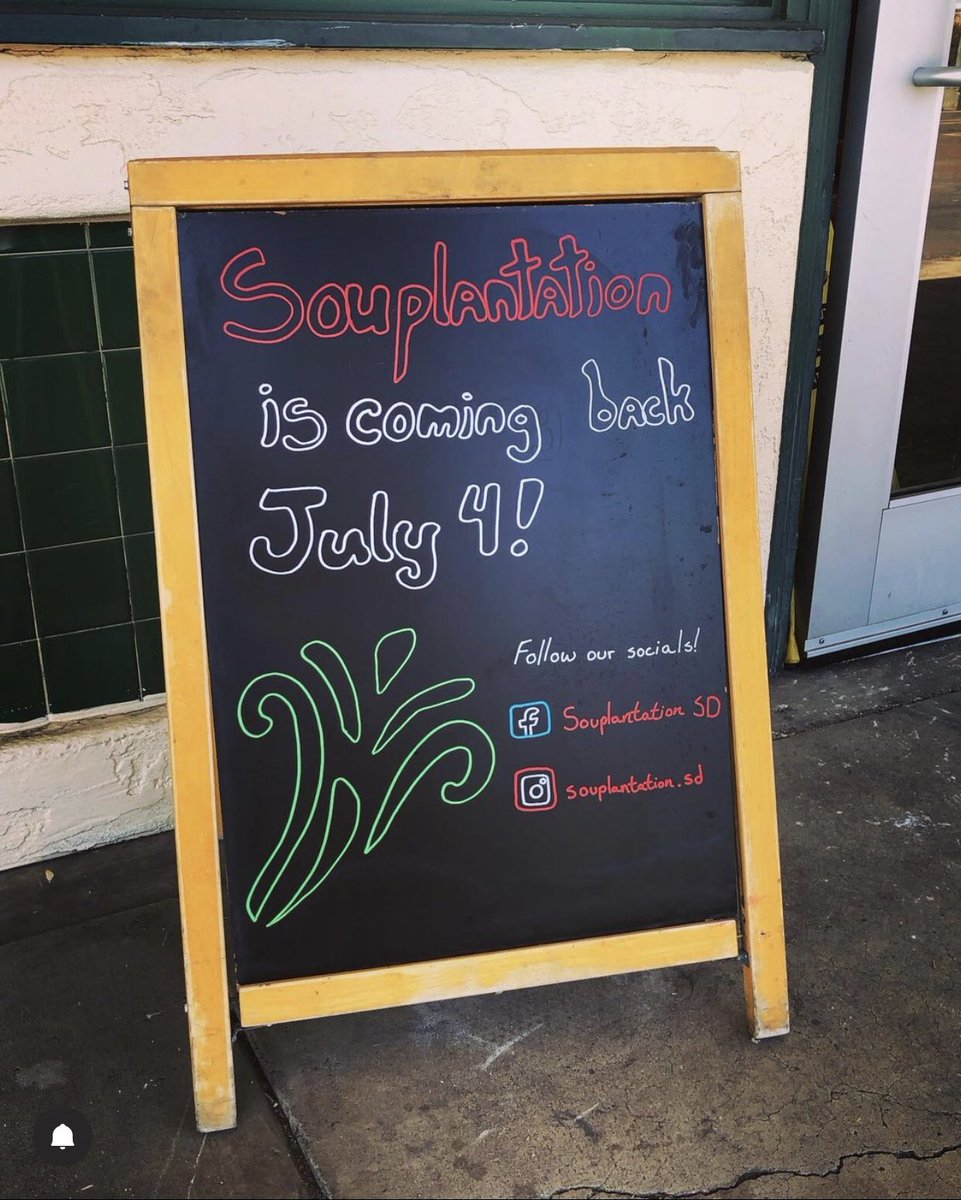 Souplantation
is coming back
July 4!
Follow our socials!
Souplantation SD
souplantation.sd